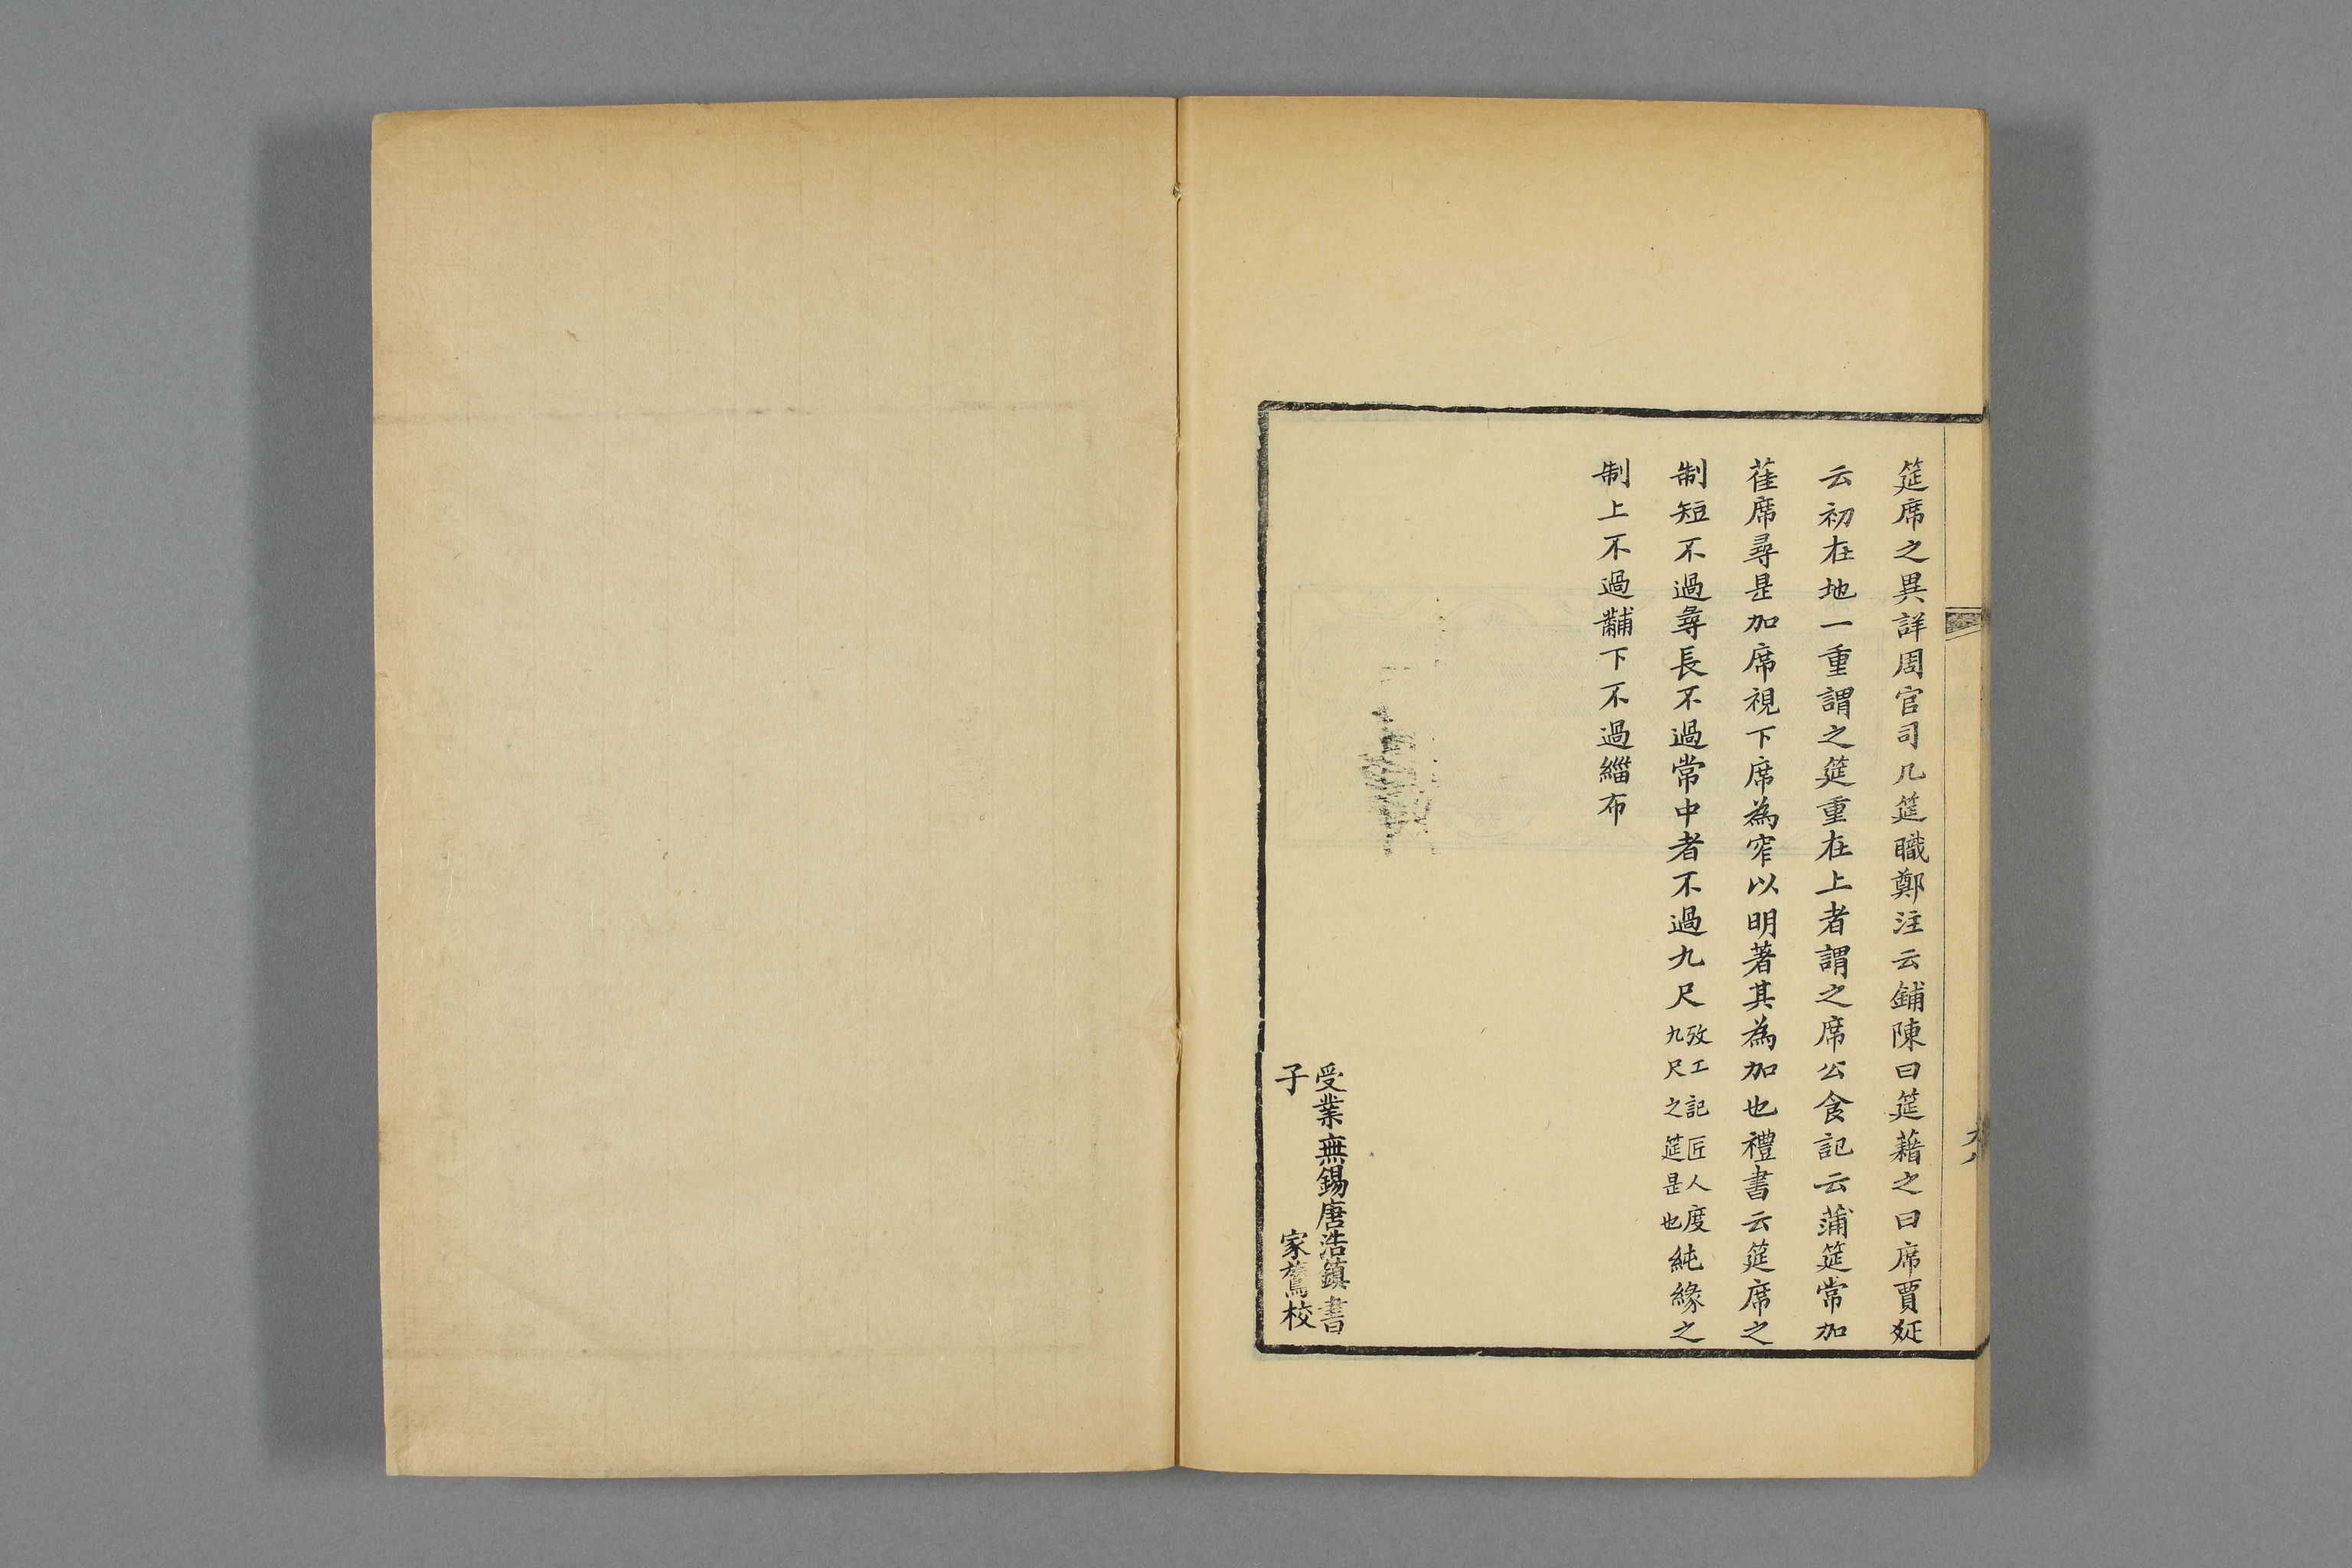 筵席之異詳周官司几筵職鄭注云鋪陳曰筵藉之曰席賈䟽
云初在地一重謂之筵重在上者謂之席公食記云蒲筵常加
萑席尋是加席視下席為窄以明著其為加也禮書云筵席之
制短不過尋長不過常中者不過九尺攷工記匠人度九尺之筵是也純緣之
制上不過黼下不過緇布
受業無錫唐浩鎮書
子家鶩校